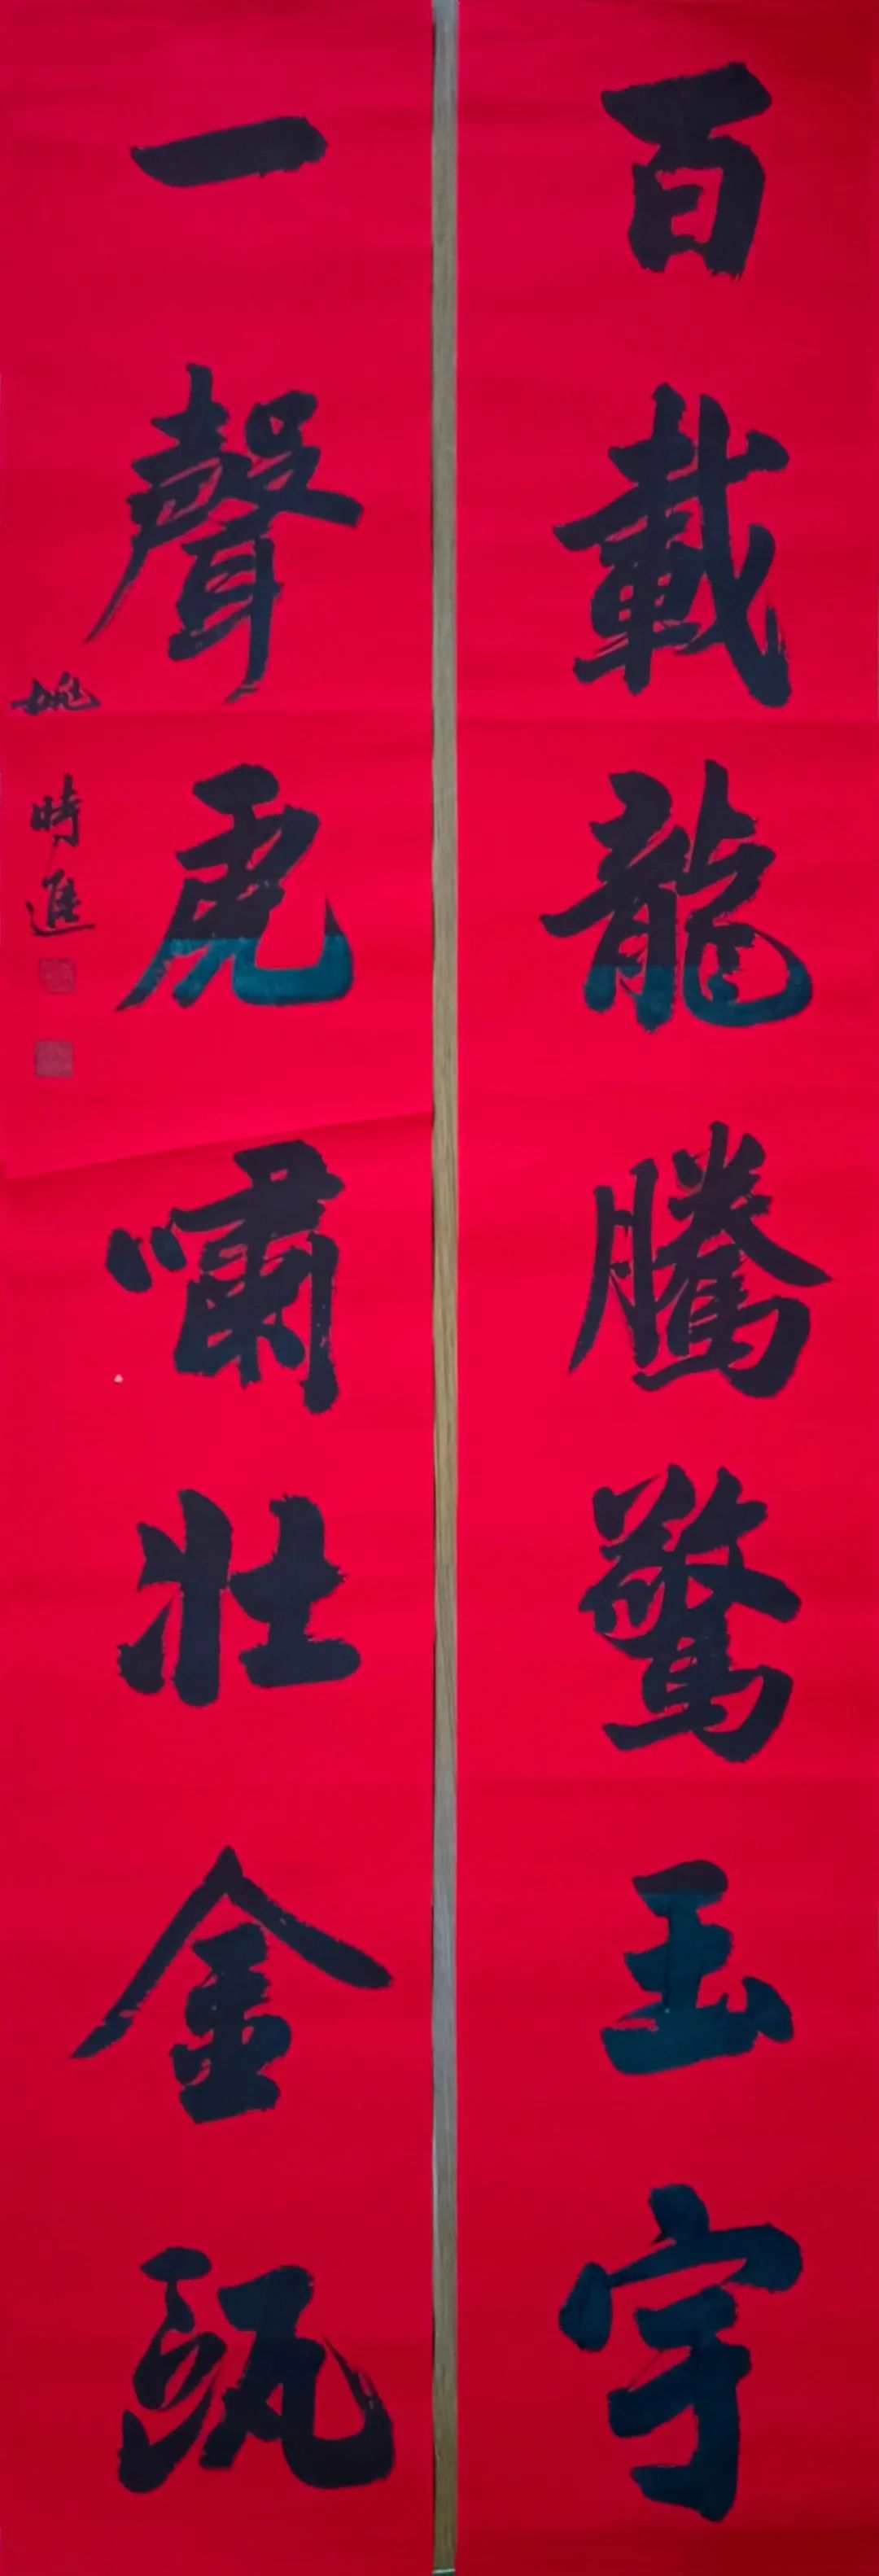 百載龍騰驚玉宇
一聲虎嘯壯金甌
姚時進